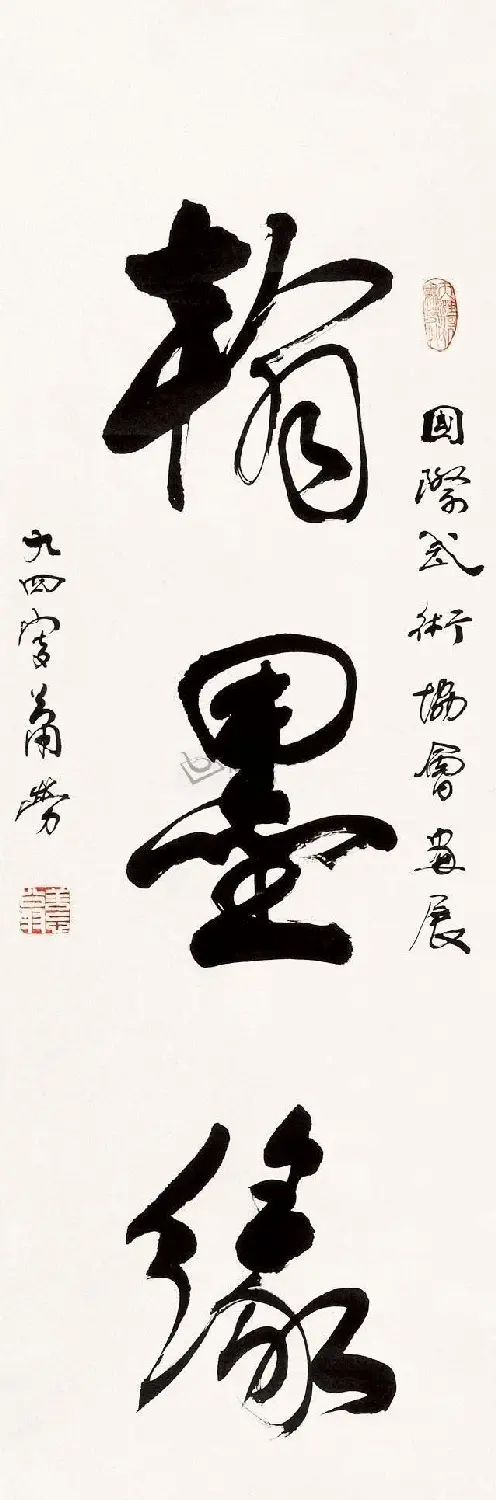 國際武術協會書展
翰墨緣
九四叟蕭勞